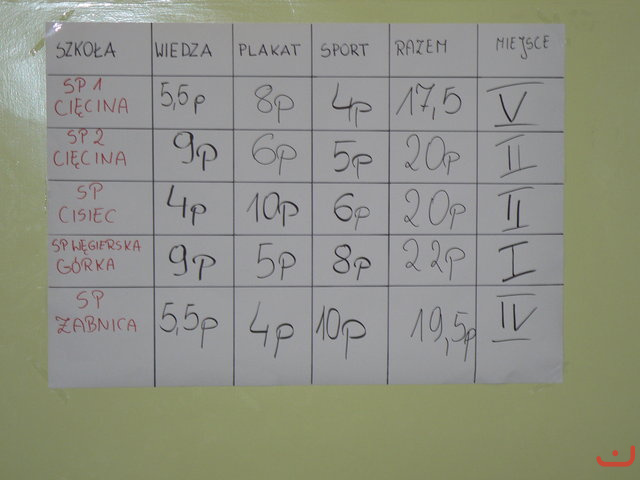 SZKOŁA WIEDZA PLAKAT SPORT RAZEM MIEJSCE
SP 1
CIĘCINA 5,5p 8p 4p 17,5 V
SP 2
CIĘCINA 9p 6p 5p 20p II
SP
CISIEC 4p 10p 6p 20p II
SP WĘGIERSKA
GÓRKA 9p 5p 8p 22p I
SP
ŻABNICA 5,5p 4p 10p 19,5p IV